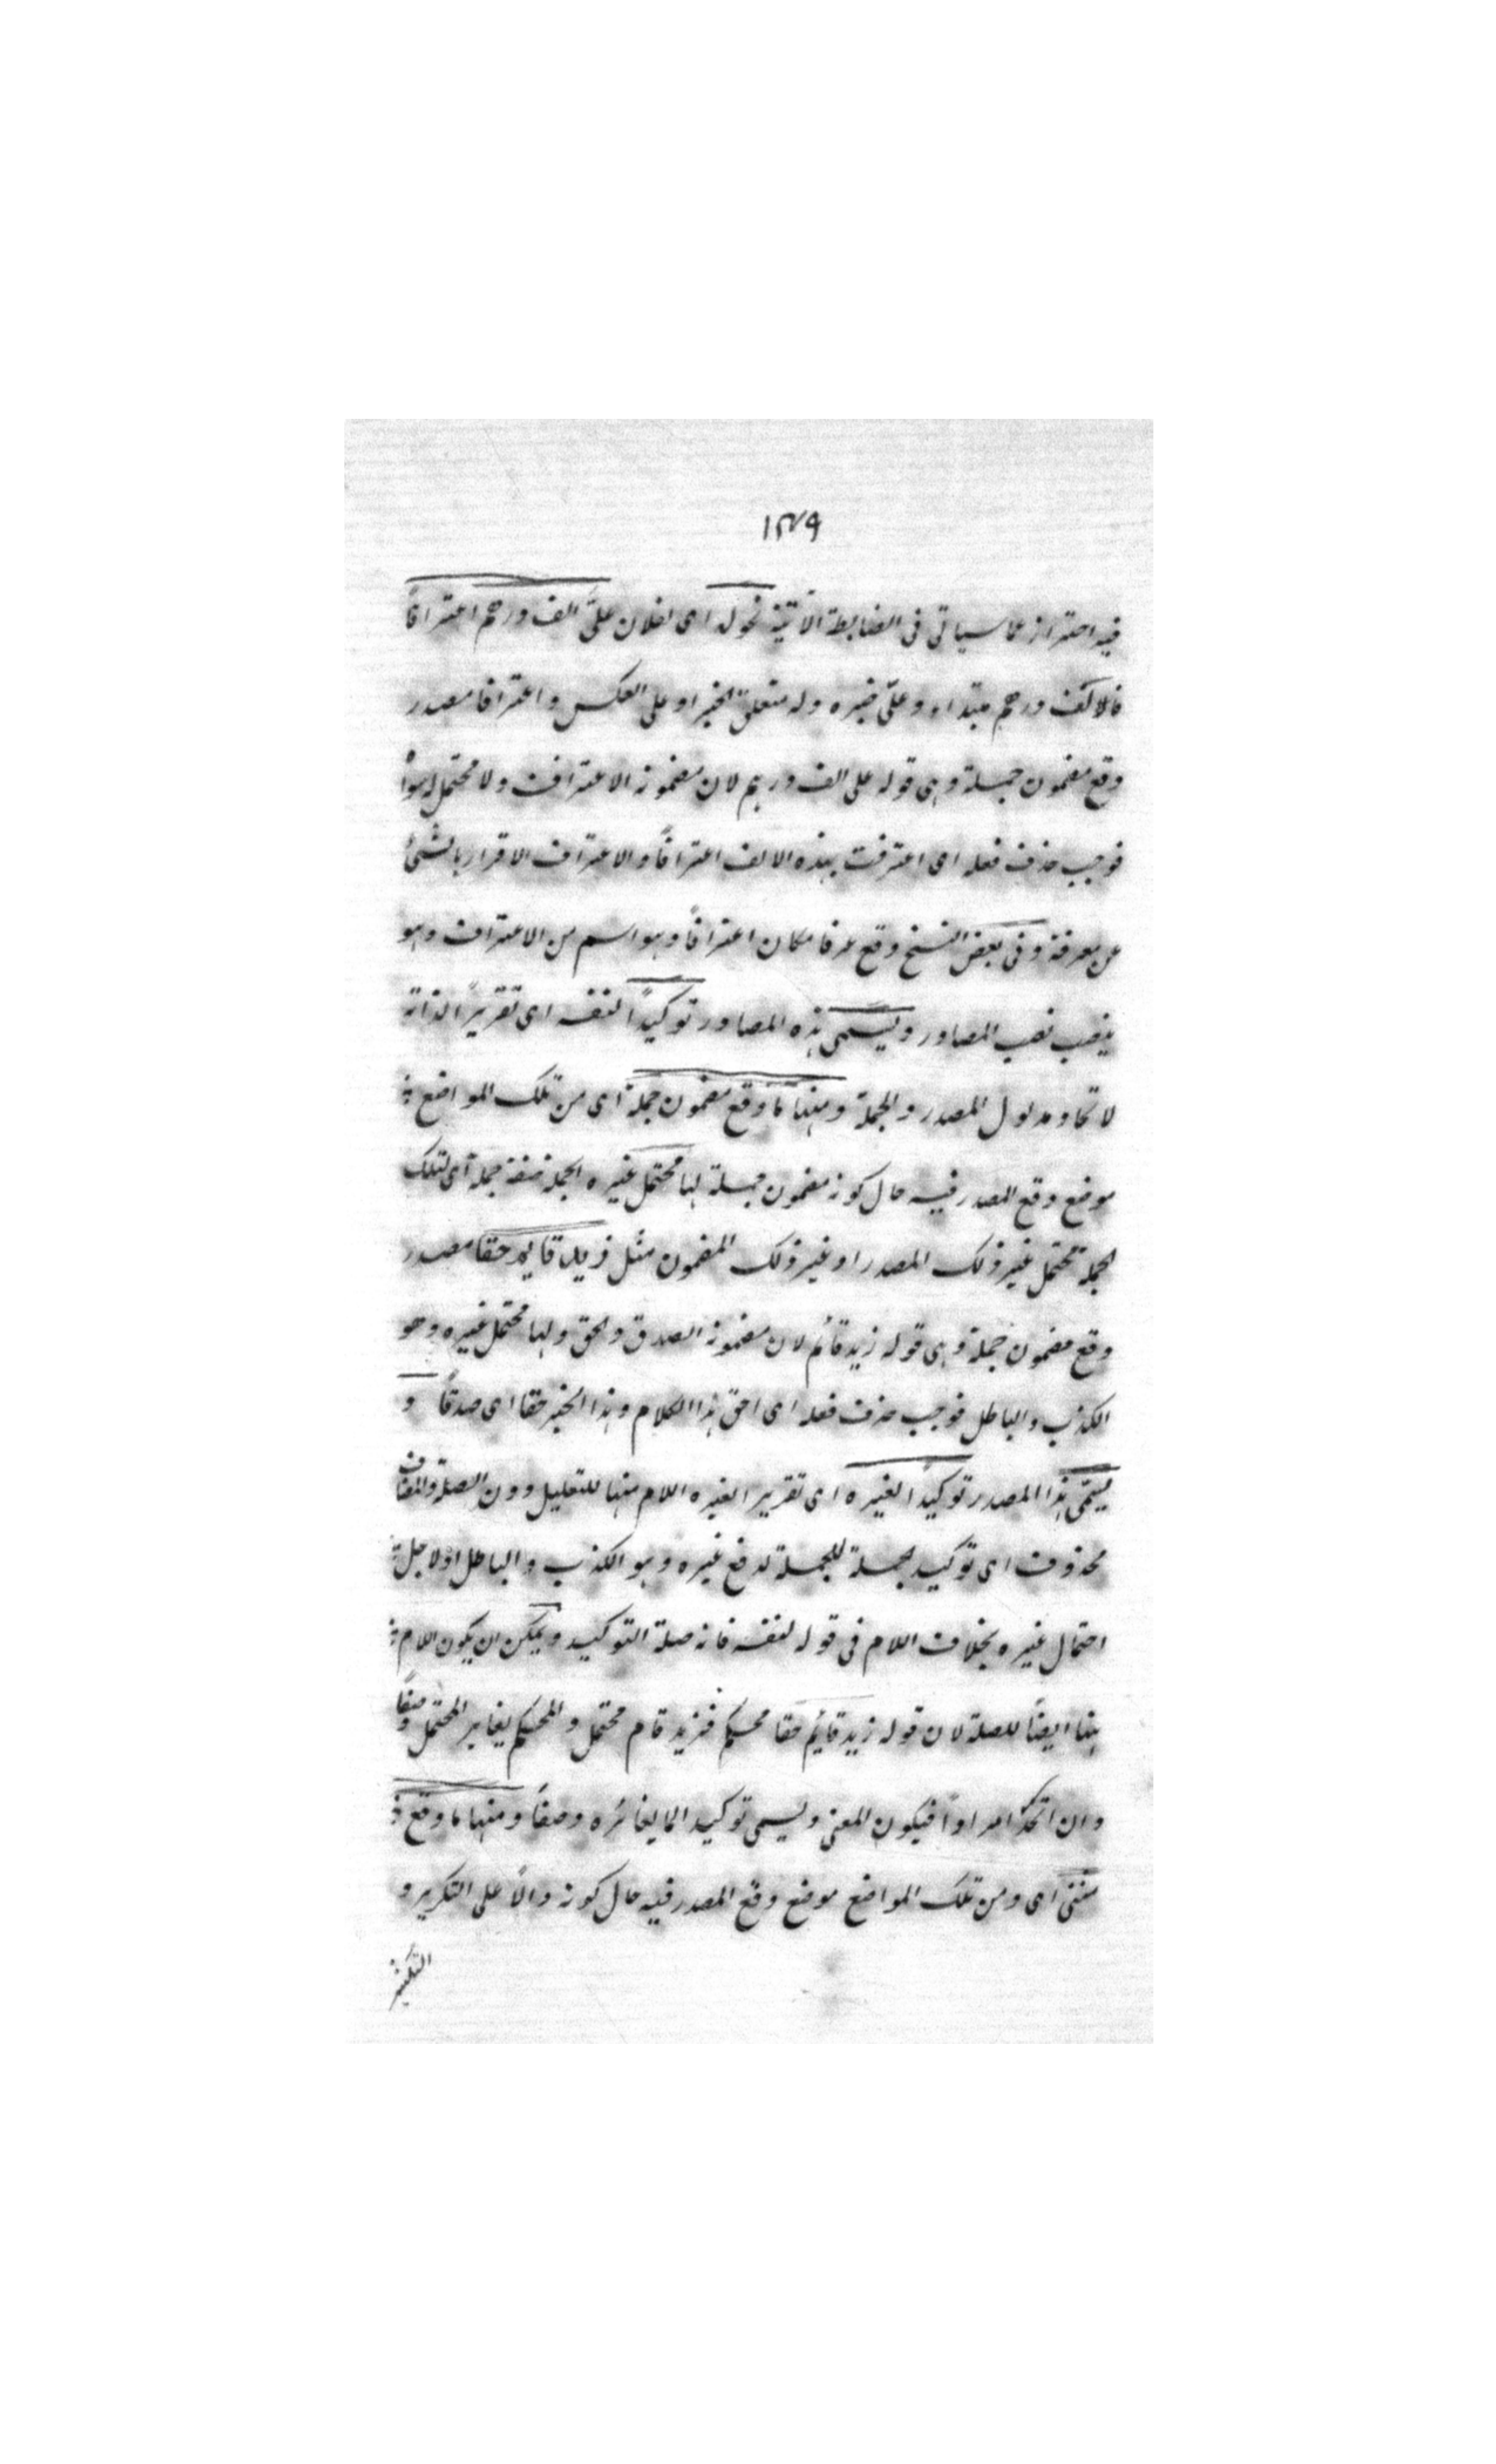 ١٣٧٩
فيه احتراز عما سياتى فى الضابطة الآتية نحو له اى لفلان علىَّ الف درهم اعترافاً
فالالف درهم مبتداء وعلىّ خبره وله متعلق الخبر او على العكس واعترافا مصدر
وقع مضمون جملة وهى قوله على الف درهم لان مضمونه الاعتراف ولا محتمل لها سواه
فوجب حذف فعله اى اعترفت بهذه الالف اعترافاً والاعتراف الاقرار بالشئ
عن معرفة وفى بعض النسخ وقع عرفا مكان اعترافاً وهو اسم من الاعتراف وهو
ينصب نصب المصادر ويسمى هذه المصادر توكيداً لنفسه اى تقريراً لذاته
لاتحاد مدلول المصدر والجملة ومنها ما وقع مضمون جملة اى من تلك المواضع
موضع وقع المصدر فيه حال كونه مضمون جملة لها محتمل غيره الجملة صفة جملة اى لتلك
الجملة محتمل غير ذلك المصدر او غير ذلك المضمون مثل زيد قايم حقا مصدر
وقع مضمون جملة وهى قوله زيد قائم لان مضمونه الصدق والحق ولها محتمل غيره وهو
الكذب والباطل فوجب حذف فعله اى احق هذا الكلام وهذا الخبر حقا اى صدقاً و
يسمّى هذا المصدر توكيداً لغيره اى تقريرا لغيره اللام منها للتعليل دون الصلة والمضاف
محذوف اى توكيد لجملة للجملة لدفع غيره وهو الكذب والباطل او لاجل
احتمال غيره بخلاف اللام فى قوله لنفسه فانه صلة التوكيد ويمكن ان يكون اللام
هنا ايضاً للصلة لان قوله زيد قايم حقا محكم فزيد قام محتمل والمحكم يغاير المحتمل وصفاً
وان اتحد امراداً فيكون المعنى ويسمى توكيدا لما يغائره وصفاً ومنها ما وقع
مثنى اى ومن تلك المواضع موضع وقع المصدر فيه حال كونه دالاً على التكرير و
التكثير